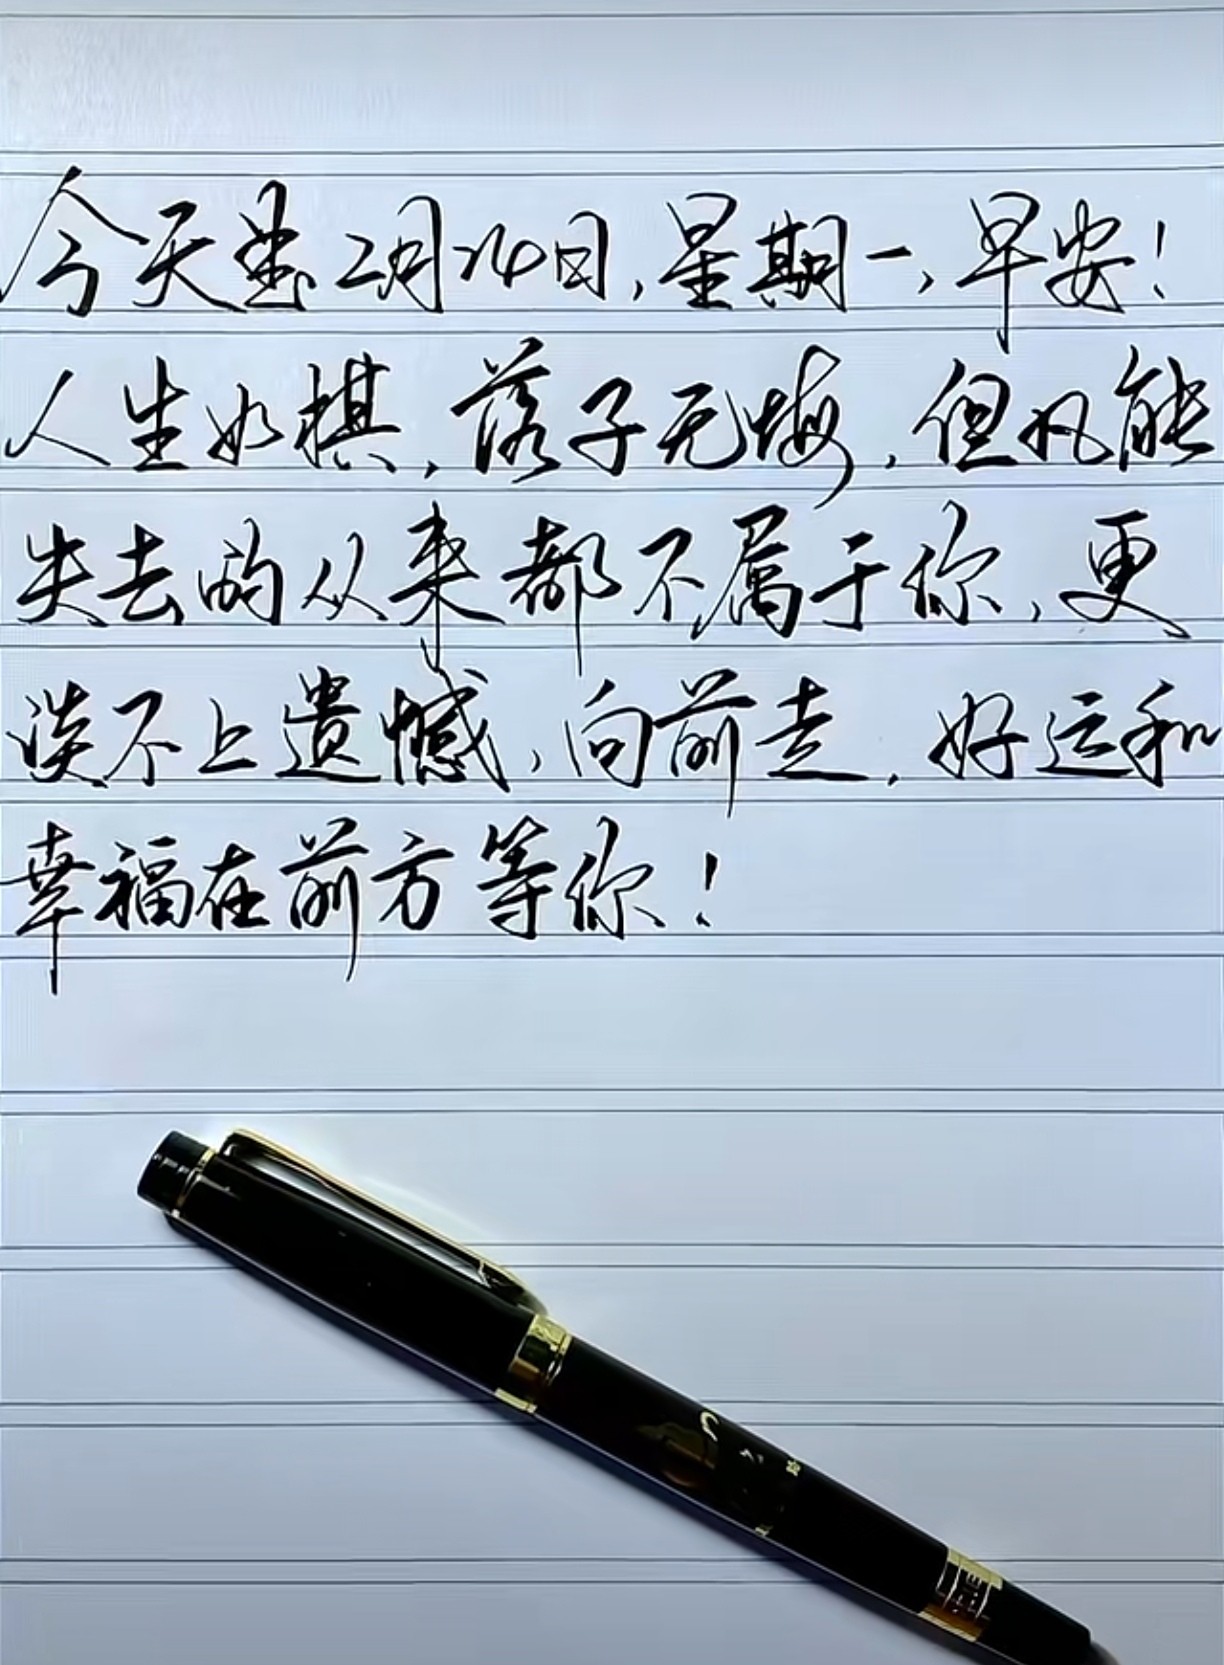 今天是2月24日,星期一,早安!
人生如棋,落子无悔,但凡能
失去的从来都不属于你,更
谈不上遗憾,向前走,好运和
幸福在前方等你!